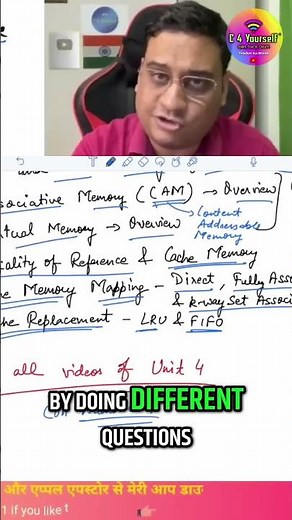 C 4 Yourself
Associative Memory (CAM) → Overview
Content
Addressable
Memory
Virtual Memory → Overview
Locality of Reference & Cache Memory
Memory Mapping - Direct, Fully Asso
& k-way Set Associ
Replacement - LRU & FIFO
all videos of Unit 4
BY DOING DIFFERENT
QUESTIONS
और एप्पल एपस्टोर से मेरी आप डाउ
1 if you like t